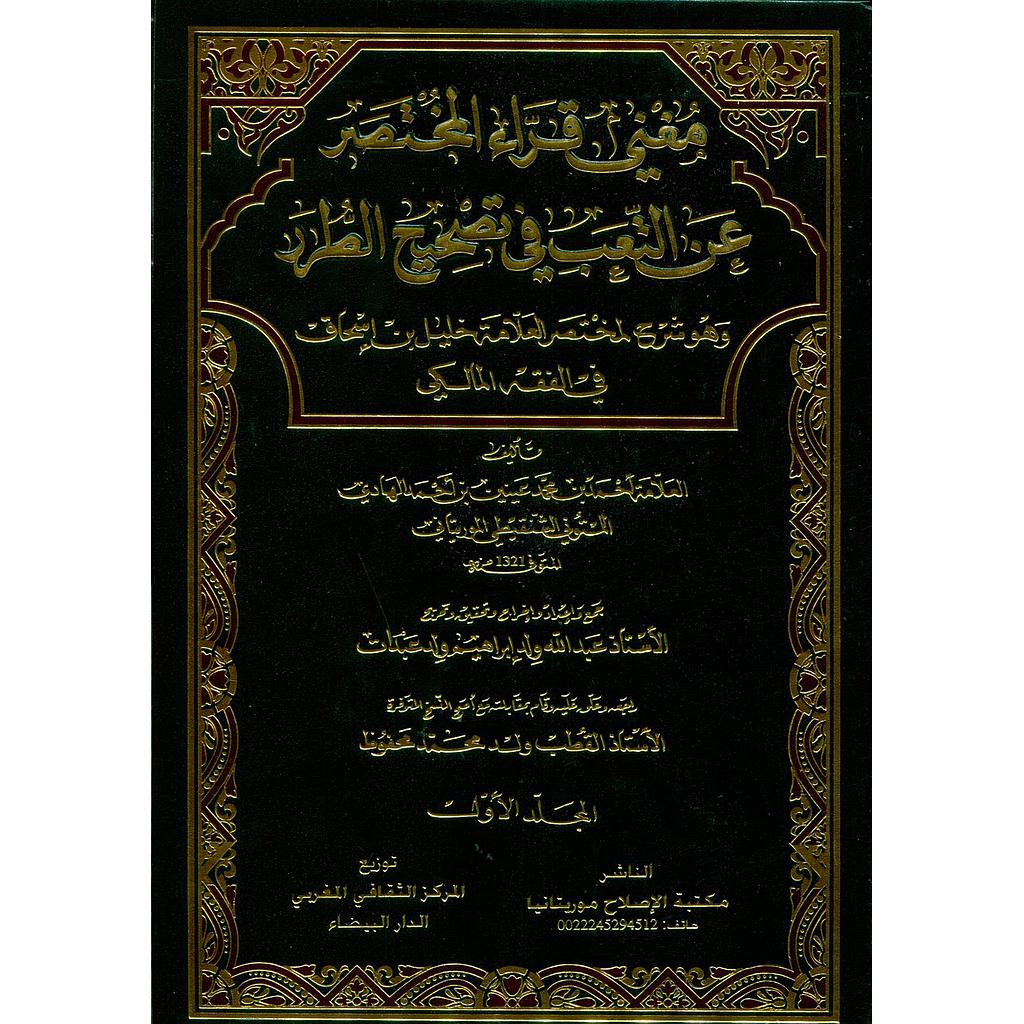 مُغْني قُرَّاءِ المُخْتَصَر
عَنِ التَّعَبِ في تَصْحِيحِ الطُّرَرَ
وَهُوَ شَرْحٌ لمُخْتَصَر العَلّامَة خَليل بن إسْحَاق
في الفقه المالكي
تأليف
العَلّامَة أحْمَد بن محَمَّد عَينين بن أحْمَد الهادي
اللمتوني الشنقيطي الموريتاني
المتوفى 1321هـ
جمع وإعداد وإخراج وتحقيق وتخريج
الأسْتاذ عَبد الله ولد إبراهيم ولد عبدات
وعلق عليه وقام بمقابلته مع أصح النسخ المتوفرة
الأسْتاذ القُطب ولد محمّد محفوظ
المجَلّد الأوّل
الناشر
مكتبة الإصلاح موريتانيا
هاتف: 0022245294512
توزيع
المركز الثقافي المغربي
الدار البيضاء